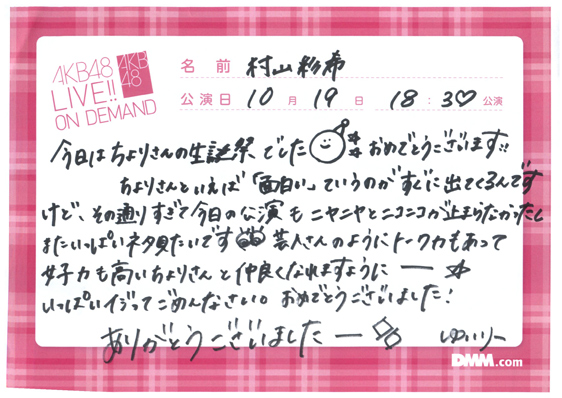 AKB48
LIVE!!
ON DEMAND
AKB
48
名前 村山彩希
公演日 10月19日 18:30公演
今日はちよりさんの生誕祭でした おめでとうございます!!
ちよりさんといえば「面白い」ていうのがすぐに出てくるんです
けど、その通りすぎて今日の公演もニヤニヤとニコニコが止まらなかったし
またいっぱいネタ見たいです 芸人さんのようにトーク力もあって
女子力も高いちよりさんと仲良くなれますようにー☆
いっぱいイジってごめんなさい。おめでとうございました!
ありがとうございましたー
ゆいりー
DMM.com